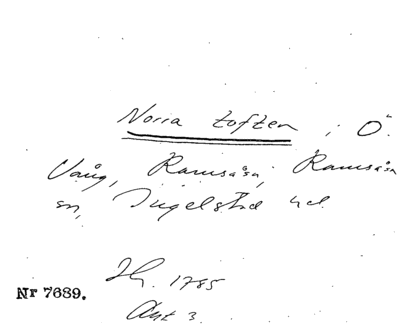 Norra toften i Ö.
Vång, Ramsåsa, Ramsåsa
sn, Ingelstad hd.
Sk. 1785
Nr 7689.
Akt 3.